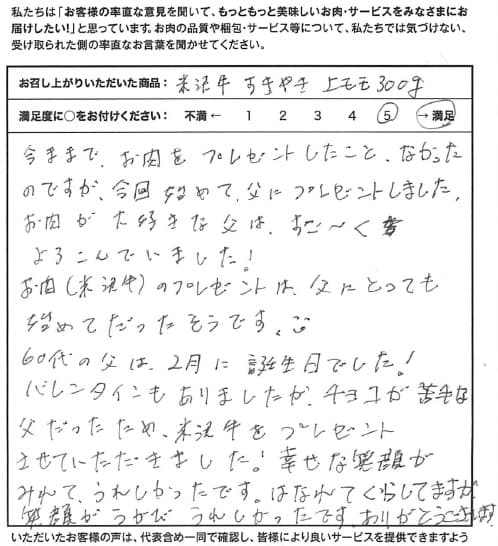 私たちは「お客様の率直な意見を聞いて、もっともっと美味しいお肉・サービスをみなさまにお
届けしたい！」と思っています。お肉の品質や梱包・サービス等について、私たちでは気づけない、
受け取られた側の率直なお言葉を聞かせてください。
お召し上がりいただいた商品： 米沢牛 すきやき 上モモ300g
満足度に○をお付けください： 不満 ← 1 2 3 4 5 → 満足
今まで、お肉をプレゼントしたこと、なかった
のですが、今回 始めて、父に プレゼントしました。
お肉が大好きな父は、すご〜く
よろこんでいました！
お肉(米沢牛)のプレゼントは、父にとっても
始めてだったそうです。
60代の父は、2月に誕生日でした！
バレンタインもありましたが、チョコが苦手な
父だったため、米沢牛をプレゼント
させていただきました！幸せな笑顔が
みれて、うれしかったです。はなれてくらしてますが
笑顔がうかび うれしかったです。ありがとうございます
いただいたお客様の声は、代表含め一同で確認し、皆様により良いサービスを提供できますよう